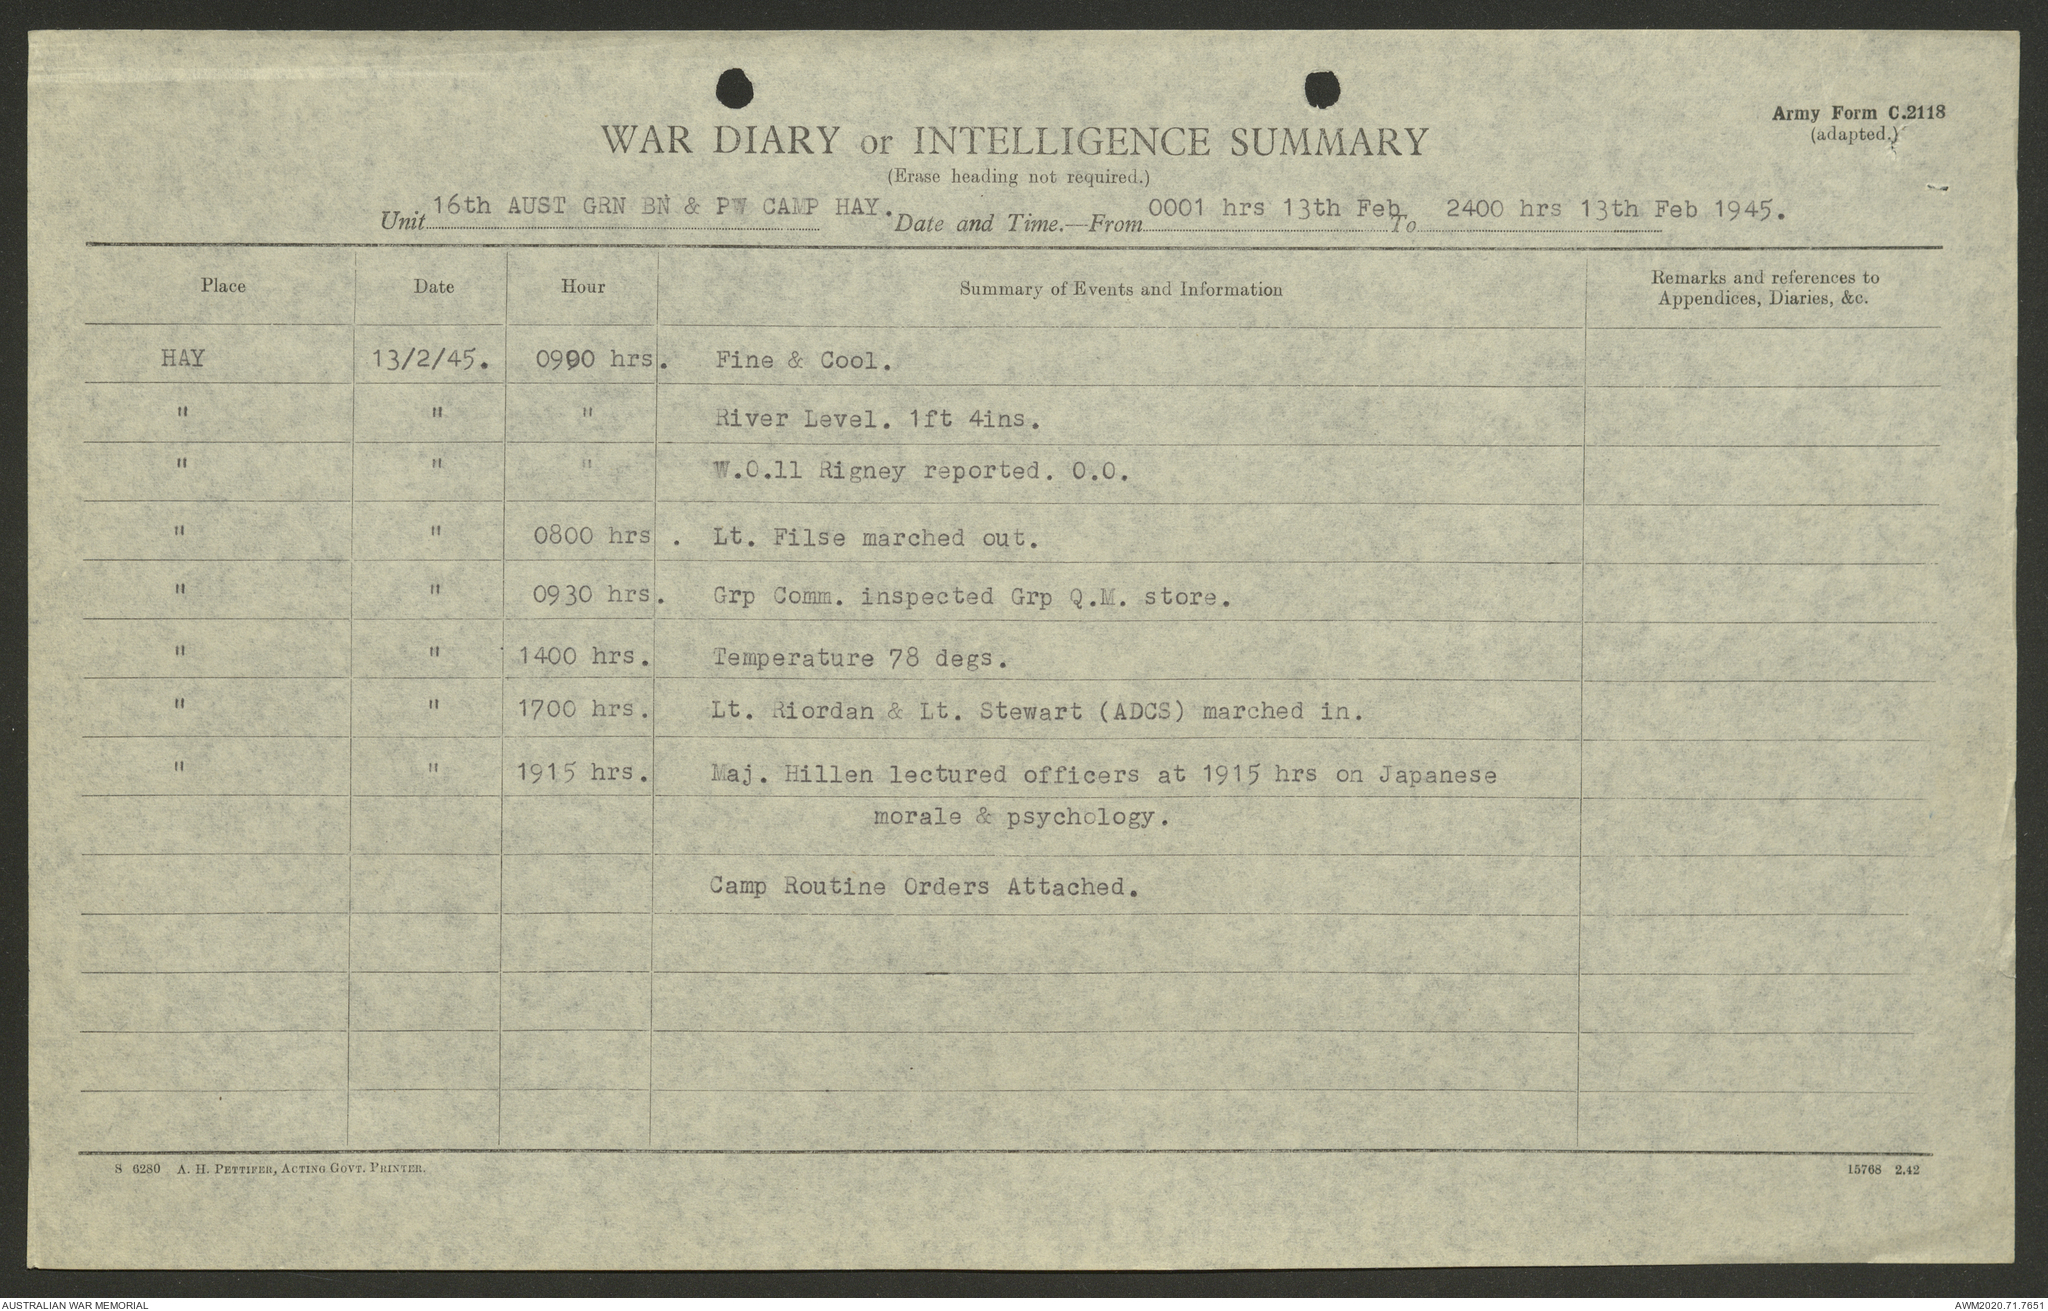 Army Form C.2118
(adapted.)
WAR DIARY or INTELLIGENCE SUMMARY
(Erase heading not required.)
Unit 16th AUST GRN BN & PW CAMP HAY. Date and Time.—From 0001 hrs 13th Feb To 2400 hrs 13th Feb 1945.
Place Date Hour Summary of Events and Information Remarks and references to
Appendices, Diaries, &c.
HAY 13/2/45. 0900 hrs. Fine & Cool.
" " " River Level. 1ft 4ins.
" " " W.O.11 Rigney reported. O.O.
" " 0800 hrs . Lt. Filse marched out.
" " 0930 hrs. Grp Comm. inspected Grp Q.M. store.
" " 1400 hrs. Temperature 78 degs.
" " 1700 hrs. Lt. Riordan & Lt. Stewart (ADCS) marched in.
" " 1915 hrs. Maj. Hillen lectured officers at 1915 hrs on Japanese
morale & psychology.
Camp Routine Orders Attached.
S 6280 A. H. PETTIFER, ACTING GOVT. PRINTER. 15768 2.42
AUSTRALIAN WAR MEMORIAL AWM2020.71.7651